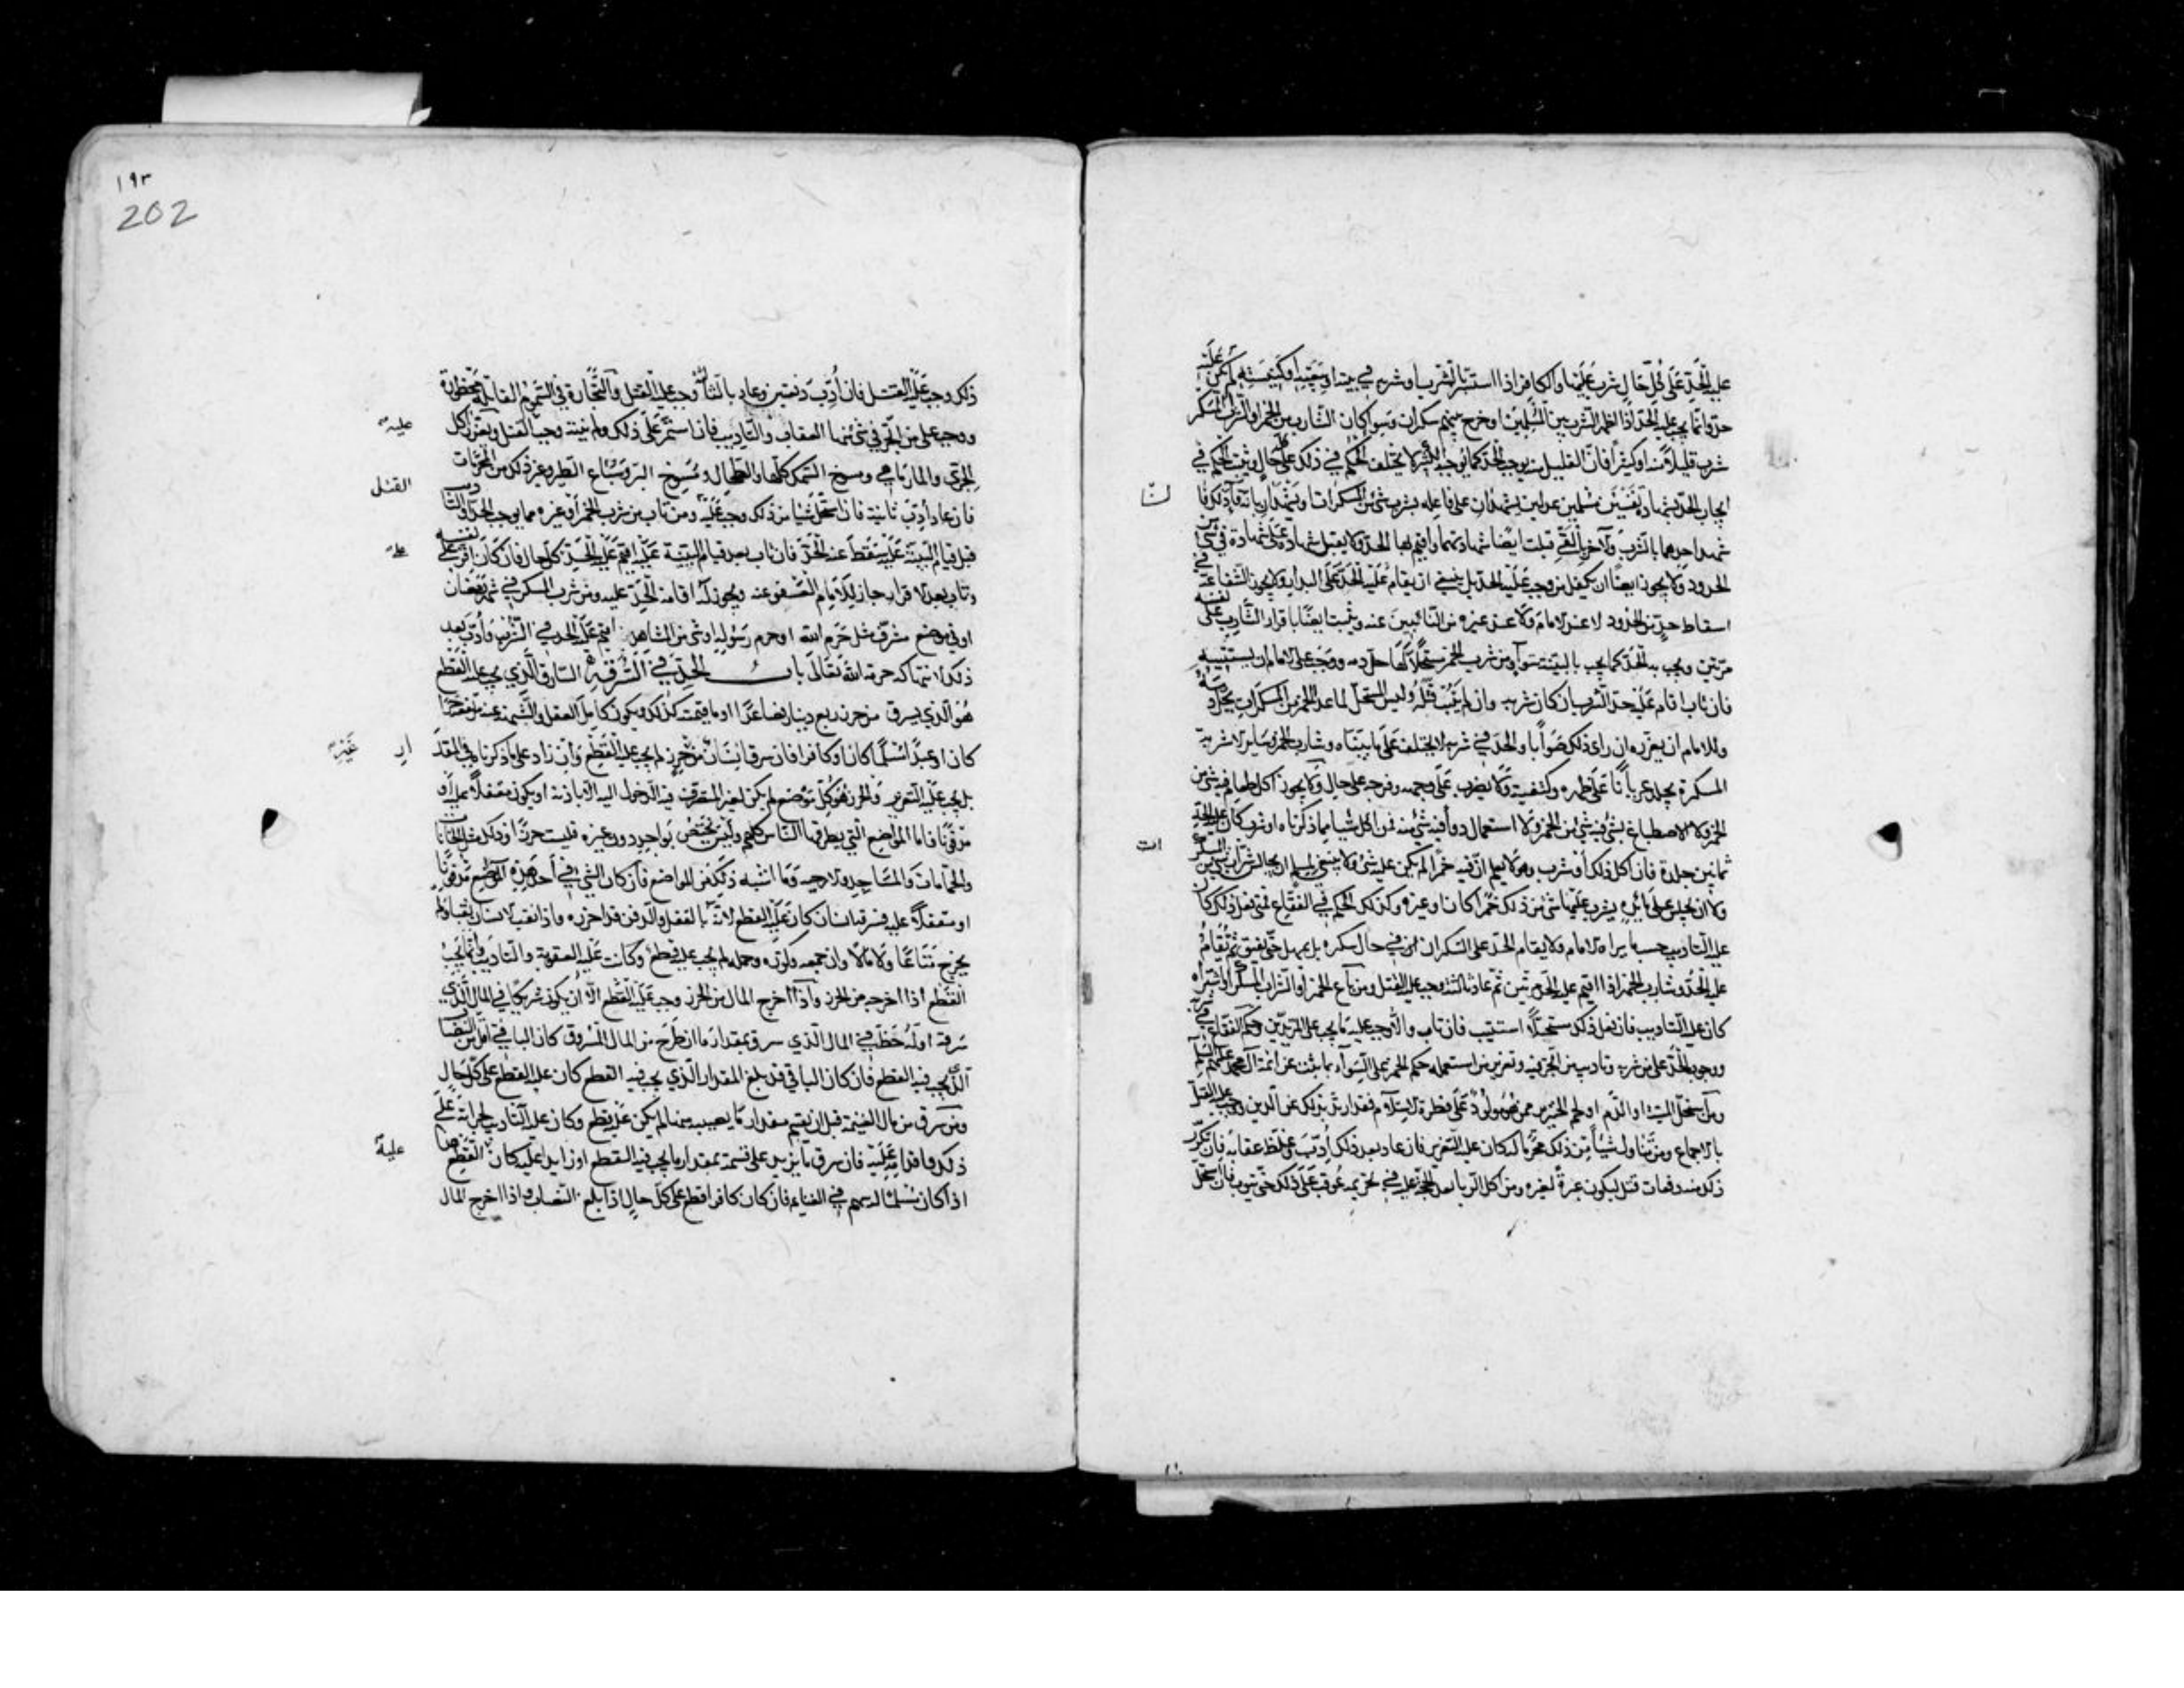 عليه الحد على كل حال شرب عليها والكافر اذا استتر بالشرب او شربه في بيته او بيعته او كنيسته لم يكن عليه
حد وانما يجب عليه الحد اذا اظهر الشرب بين المسلمين او خرج بينهم سكران وسوا كان الشارب من الخمر او الشراب المسكر
شرب قليلا منه او كثيرا فان القليل منه يوجب الحد كما يوجبه الكثير لا يختلف الحكم في ذلك على حال ويثبت الحكم في
ايجاب الحد بشهادة نفسين مسلمين عدلين يشهدان على فاعله بشرب شئ من المسكرات او يشهدان بانه قاء ذلك فان
شهد احدهما بالشرب والاخر بالقئ قبلت ايضا شهادتهما واقيم بها الحد ولا يقبل شهادة على شهادة في شئ من
الحدود ولا يجوز ايضا ان يكفل من وجب عليه الحد بل ينبغي ان يقام عليه الحد على البدار ولا يجوز الشفاعة في
اسقاط حد من الحدود لا عند الامام ولا عند غيره من النائبين عنه ويثبت ايضا باقرار الشارب على نفسه
مرتين ويجب به الحد كما يجب بالبينة سوآء ومن شرب الخمر مستحلا لها حل دمه ووجب على الامام ان يستتيبه
فان تاب اقام عليه حد الشرب ان كان شربه وان لم يتب قتله وليس المستحل لما عدا الخمر من المسكرات يحل دمه
وللامام ان يعزره ان راى ذلك صوابا والحد في شربه لا يختلف على ما بيناه وشارب الخمر وساير الاشربة
المسكرة يجلد عريانا على ظهره وكتفيه ولا يضرب على وجهه وفرجه على حال ولا يجوز اكل طعام فيه شئ من
الخمر ولا الاصطباغ بشئ فيه شئ من الخمر ولا استعمال دوآء فيه شئ منه فمن اكل شيا مما ذكرناه او شرب كان عليه الحد
ثمانين جلدة فان اكل ذلك او شرب وهو لا يعلم ان فيه خمرا لم يكن عليه شئ ولا ينبغي لمسلم ان يجالس شراب شئ من المسكرات
ولا ان يجلس على مائدة يشرب عليها شئ من ذلك خمرا كان او غيره وكذلك الحكم في الفقاع فمتى فعل ذلك كان
عليه التاديب حسب ما يراه الامام ولا يقام الحد على السكران في حال سكره بل يمهل حتى يفيق ثم يقام
عليه الحد وشارب الخمر اذا اقيم عليه الحد مرتين ثم عاد ثالثة وجب عليه القتل ومن باع الخمر او الشراب المسكر او اشتراه
كان عليه التاديب فان فعل ذلك مستحلا استتيب فان تاب والا وجب عليه ما يجب على المرتدين وحكم الفقاع في شربه
ووجوب الحد على من شربه وتاديب من اتجر فيه وتعزير من استعمله حكم الخمر على السوآء بما ثبت عن ائمة آل محمد عليهم السلام
ومن استحل الميتة او الدم او لحم الخنزير ممن هو مولود على فطرة الاسلام فقد ارتد بذلك عن الدين ووجب عليه القتل
بالاجماع ومن تناول شيئا من ذلك محرما له كان عليه التعزير فان عاد بعد ذلك ادب وغلظ عقابه فان تكرر
ذلك منه دفعات قتل ليكون عبرة لغيره ومن اكل الربا بعد الحجة عليه في تحريمه عوقب على ذلك حتى يتوب فان استحل
ات
١٩٣
202
ذلك وجب عليه القتل فان ادب دفعتين وعاد بالثالثة وجب عليه القتل والتجارة في السموم القاتلة محظورة
ووجب على من اتجر في شئ منها العقاب والتاديب فان استمر على ذلك ولم ينته وجب عليه القتل ويعزر اكل
الجري والمارماهي ومسوخ السمك كلها والطحال ومسوخ البر وسباع الطير وغير ذلك من المحرمات
فان عاد ادب ثانية فان استحل شيا من ذلك وجب عليه القتل ومن تاب من شرب الخمر او غيره مما يوجب الحد والتاديب
قبل قيام البينة عليه سقط عنه الحد فان تاب بعد قيام البينة عليه اقيم عليه الحد على كل حال فان كان اقر على نفسه
وتاب بعد الاقرار جاز للامام العفو عنه ويجوز له اقامة الحد عليه ومن شرب المسكر في شهر رمضان
او في موضع مشرف مثل حرم الله او حرم رسوله او شئ من المشاهد اقيم عليه الحد في الشرب وادب بعد
ذلك لانتهاكه حرمة الله تعالى باب الحد في السرقة السارق الذي يجب عليه القطع
هو الذي يسرق من حرز ربع دينار فصاعدا او ما قيمته كذلك ويكون كامل العقل والشبهة عنه مرتفعة حرا
كان او عبدا مسلما كان او كافرا فان سرق انسان من غير حرز لم يجب عليه القطع وان زاد على ما ذكرناه في المقدار
بل يجب عليه التعزير والحرز هو كل موضع لم يكن لغير المتصرف فيه الدخول اليه الا باذنه او يكون مقفلا عليه او
مدفونا فاما المواضع التي يطرقها الناس كلهم وليس يختص بواحد دون غيره فليست حرزا وذلك مثل الخانات
والحمامات والمساجد والارحية وما اشبه ذلك من المواضع فان كان الشئ في احد هذه المواضع مدفونا
او مقفلا عليه فسرقه انسان كان عليه القطع لانه بالقفل والدفن قد احرزه واذا نقب الانسان نقبا ولم
يخرج متاعا ولا مالا وان جمعه وكوره وحمله لم يجب عليه قطع وكانت عليه العقوبة والتاديب وانما يجب
القطع اذا اخرجه من الحرز واذا اخرج المال من الحرز وجب عليه القطع الا ان يكون شريكا في المال الذي
سرقه او له حظ في المال الذي سرق بمقدار ما ان طرح من المال المسروق كان الباقي اقل من النصاب
الذي يجب فيه القطع فان كان الباقي قد بلغ المقدار الذي يجب فيه القطع كان عليه القطع على كل حال
ومن سرق من مال الغنيمة قبل ان يقسم مقدار ما يصيبه منها لم يكن عليه قطع وكان عليه التاديب لجرأته على
ذلك واقدامه عليه فان سرق ما يزيد على قسمته بمقدار ما يجب فيه القطع او زايدا عليه كان عليه القطع هذا
اذا كان مسلما له سهم في الغنايم فان كان كافرا قطع على كل حال اذا بلغ النصاب واذا اخرج المال